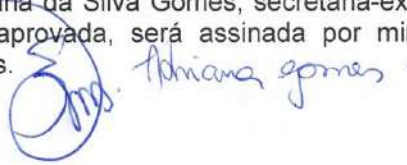 da Silva Gomes, secretária-ex
aprovada, será assinada por mi
s.
Adriana Gomes